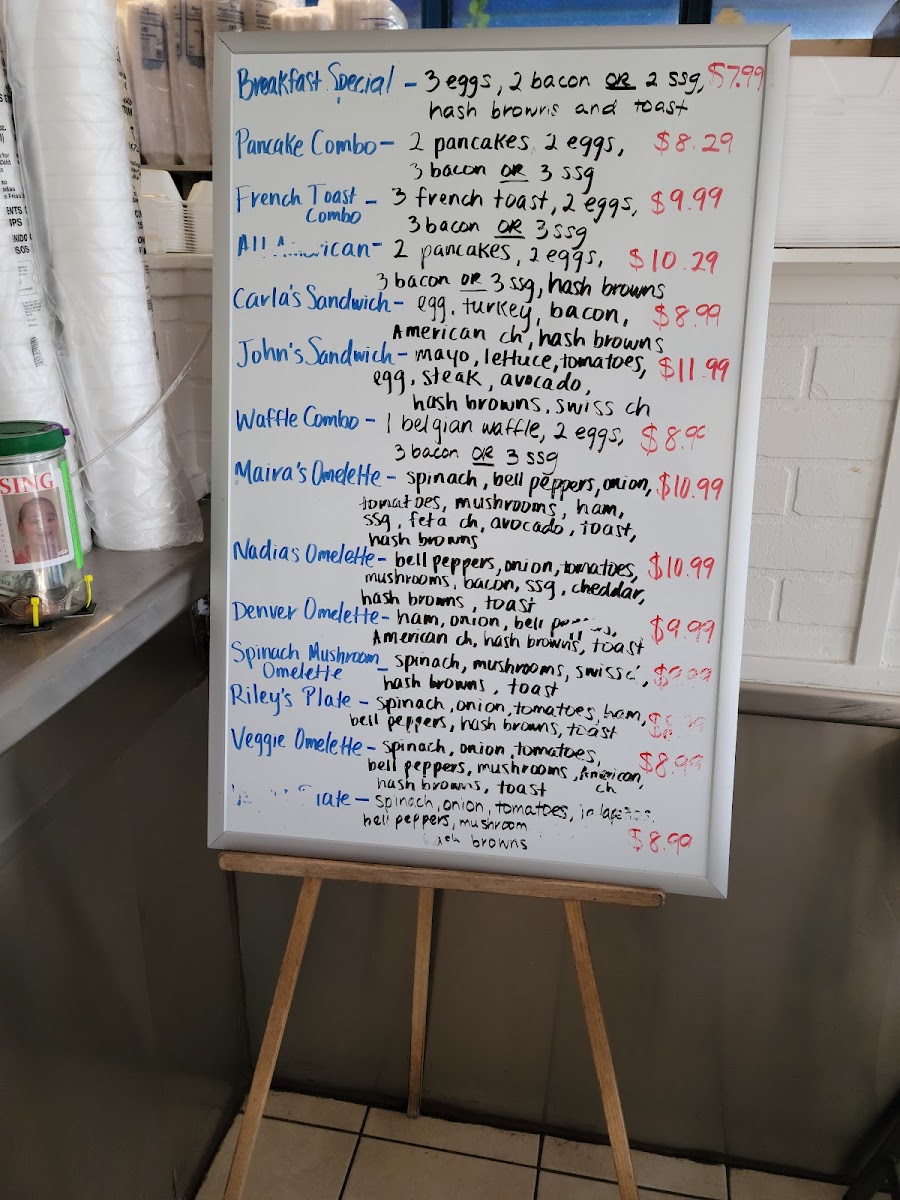 Breakfast Special - 3 eggs, 2 bacon OR 2 ssg, $7.99
hash browns and toast
Pancake Combo - 2 pancakes, 2 eggs, $8.29
3 bacon OR 3 ssg
French Toast Combo - 3 french toast, 2 eggs, $9.99
3 bacon OR 3 ssg
All American - 2 pancakes, 2 eggs, $10.29
3 bacon OR 3 ssg, hash browns
Carla's Sandwich - egg, turkey, bacon, $8.99
American ch, hash browns
John's Sandwich - mayo, lettuce, tomatoes, $11.99
egg, steak, avocado,
hash browns, swiss ch
Waffle Combo - 1 belgian waffle, 2 eggs, $8.99
3 bacon OR 3 ssg
Maira's Omelette - spinach, bell peppers, onion, $10.99
tomatoes, mushrooms, ham,
ssg, feta ch, avocado, toast,
hash browns
Nadia's Omelette - bell peppers, onion, tomatoes, $10.99
mushrooms, bacon, ssg, cheddar,
hash browns, toast
Denver Omelette - ham, onion, bell peppers, $9.99
American ch, hash browns, toast
Spinach Mushroom Omelette - spinach, mushrooms, swiss c
hash browns, toast
Riley's Plate - spinach, onion, tomatoes, ham,
bell peppers, hash browns, toast
Veggie Omelette - spinach, onion, tomatoes, $8.99
bell peppers, mushrooms, American ch
hash browns, toast
- spinach, onion, tomatoes,
bell peppers, mushroom $8.99
hash browns
SING